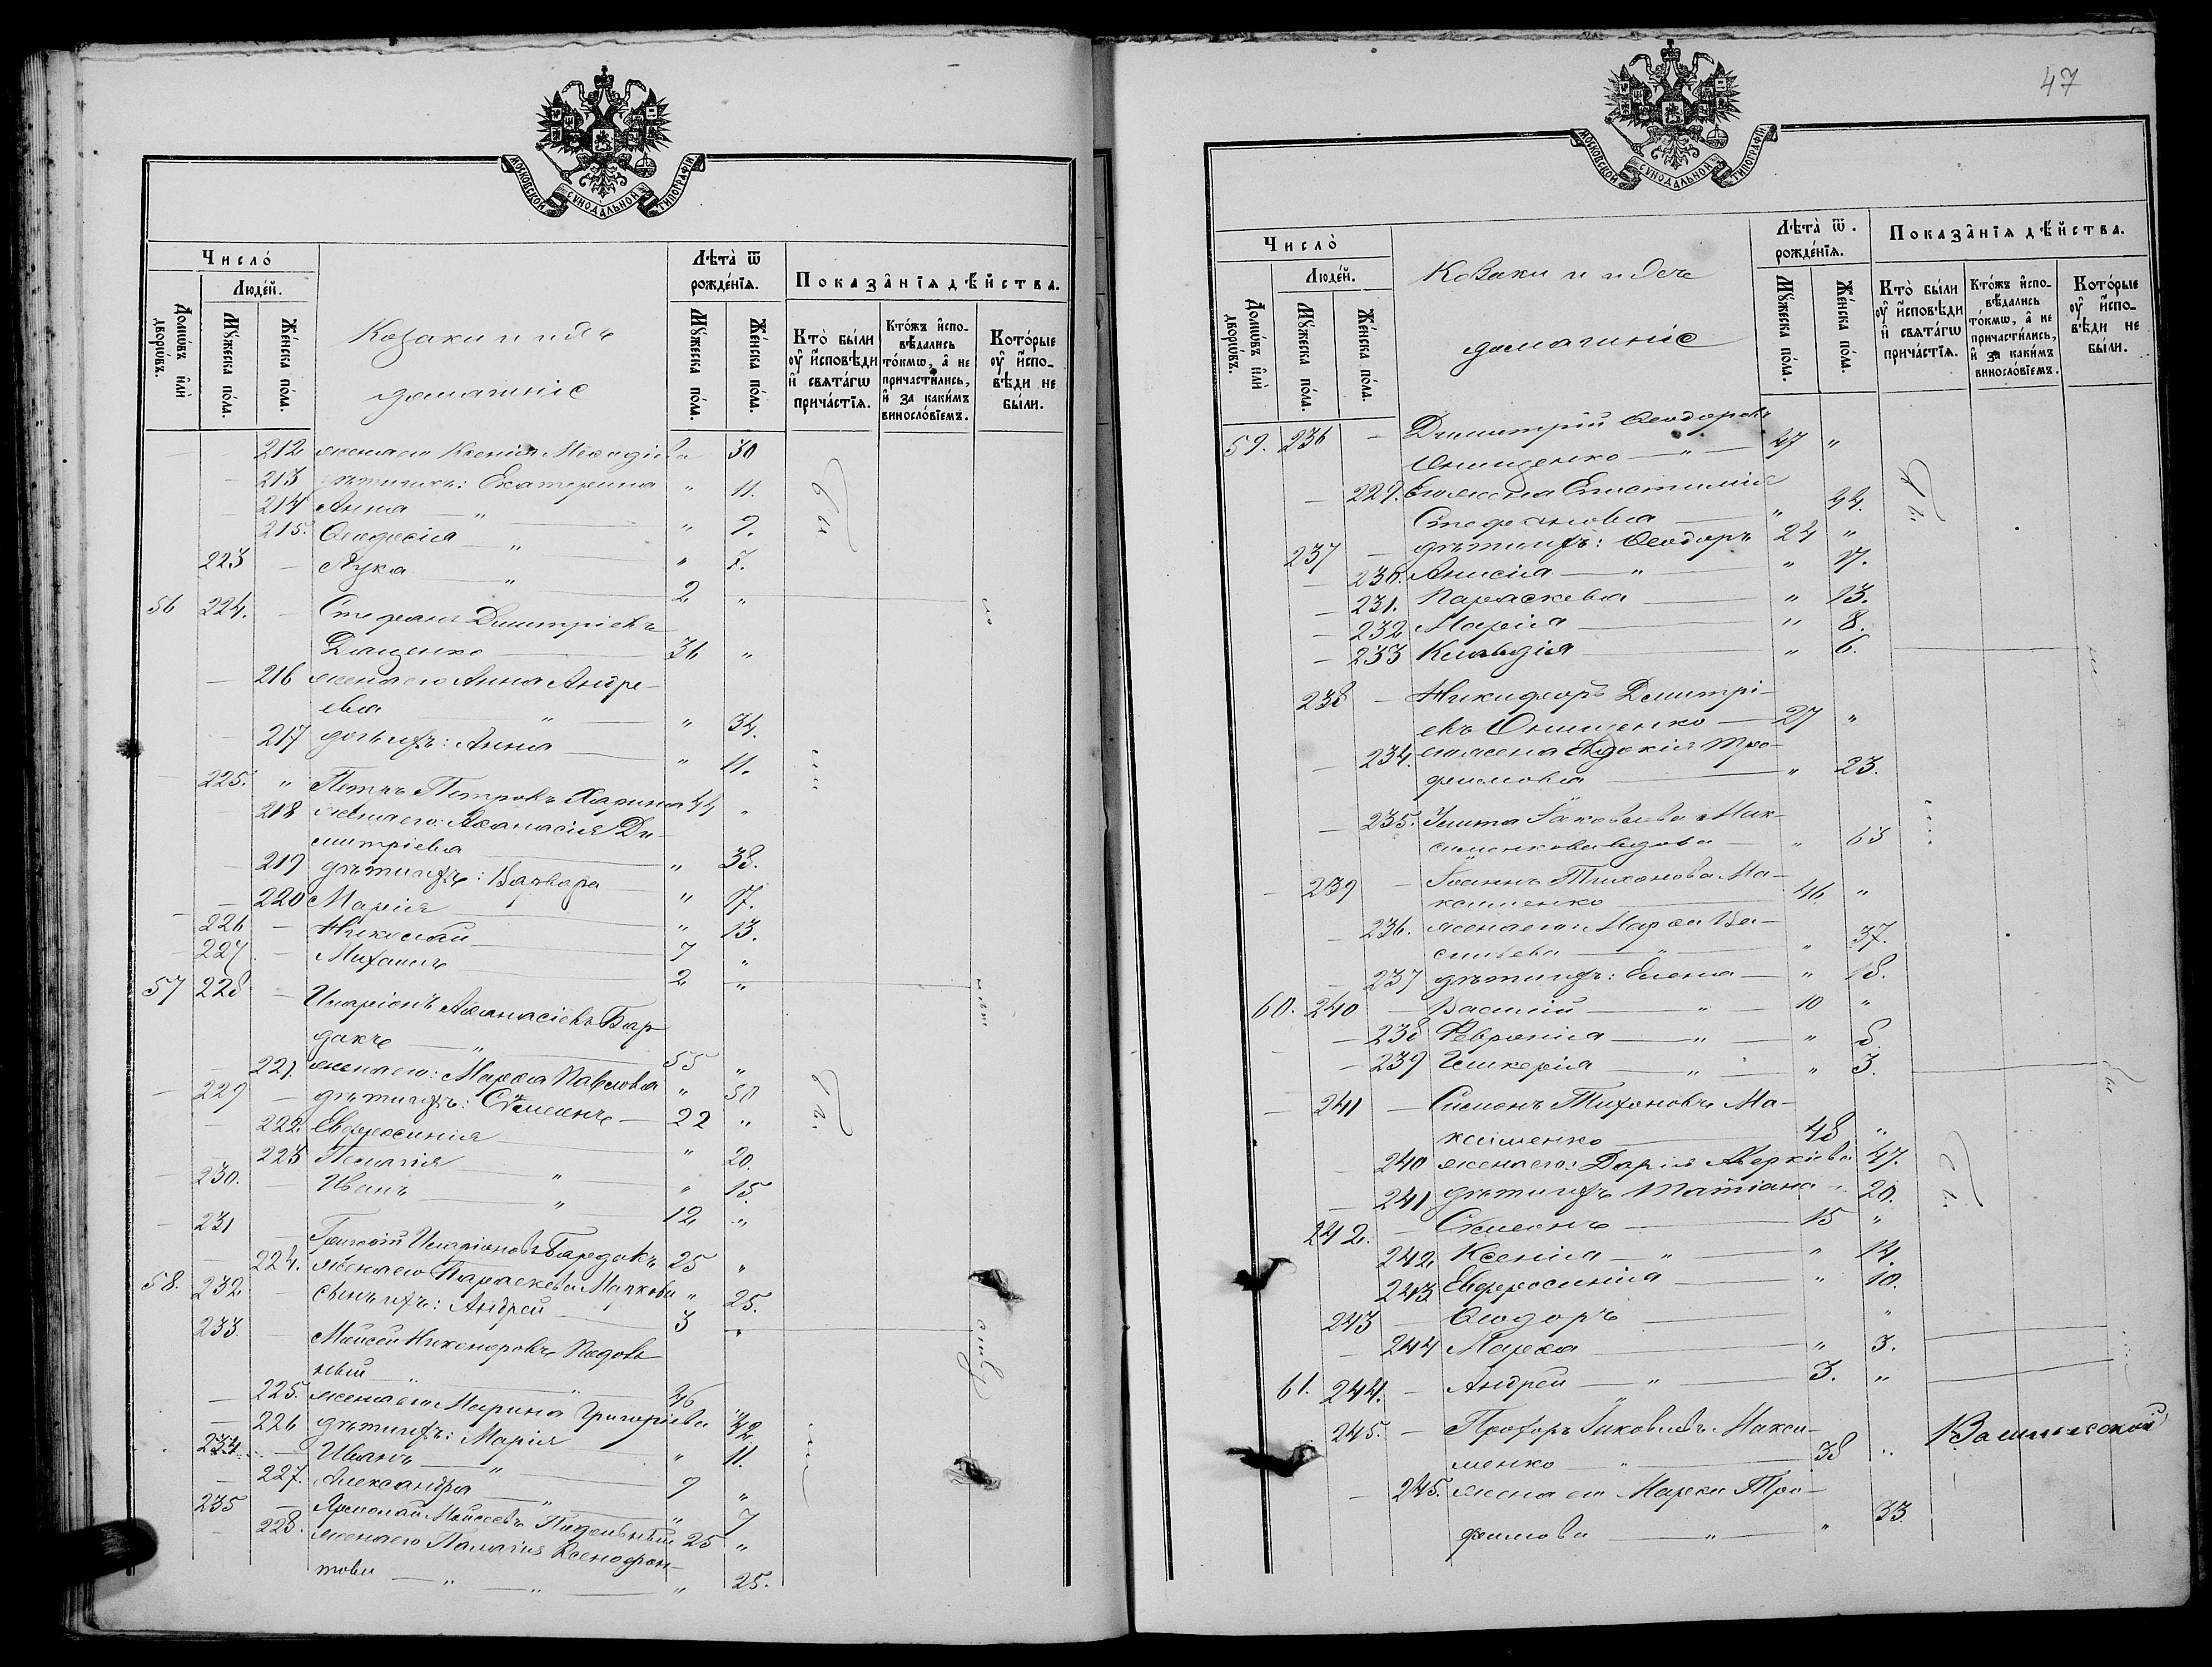 МОСКОВСКОЙ СѴНОДАЛЬНОЙ ТИПОГРАФІИ
Число̀
Людей.
Домѡвъ и҆лѝ дворѡвъ.
Мꙋжеска пола.
Женска пола.
Козаки и ихъ
домашніе
Лѣта̀ ѿ рожденїѧ.
Мꙋжеска пола.
Женска пола.
Показанїѧ дѣйства.
Кто̀ были ᲂу҆ и҆сповѣди и҆ свѧтагѡ причастїѧ.
Ктожъ и҆сповѣдались токмѡ, а҆ не причастились, и҆ за какимъ винословїемъ.
Которые ᲂу҆ и҆сповѣди не были.
212 жена его Ксенія 30
213 дѣти ихъ: Екатерина " 11.
214 Анна " " 9.
215. Ѳеодосія " "
223 — Лука " 2 "
56 224. — Стефанъ Димитріевъ
Дащенко 36 "
— 216 жена его Анна Андре-
ева " " 34.
— 217 дочь ихъ: Анна " 11.
225. " Петръ Петровъ 44 "
218 жена его: Аѳанасія Ди-
митріева " 38.
219 дѣти ихъ: Варвара " 17.
— 220 Марія " 13.
226 — Николай 7 "
227 — Михаилъ 2 "
57 228 — Иларіонъ Аѳанасіевъ Бар-
дакъ " 55 "
— 221. жена его: Марѳа Павлова " 50
229 — дѣти ихъ: Сѵмеонъ — 22 "
— 222. Евфросинія " 20.
— 223 Пелагія " " 15.
230. — Иванъ " 12 "
231 — Григорій Иларіоновъ Бардакъ 25 "
— 224. жена его Параскева Маркова " 25.
58. 232 — сынъ ихъ: Андрей 3 "
233. — Моисей Никаноровъ Подоль-
ный " " 46
— 225. жена его Марина Григорьева " 42
— 226 дѣти ихъ: Марія " 11.
234. — Иванъ " 9 "
— 227. Александра " " 7
235 — Моисеевъ 25 "
— 228. жена его Пелагія Ксенофон-
това " " " 25.
47
МОСКОВСКОЙ СѴНОДАЛЬНОЙ ТИПОГРАФІИ
Число̀
Людей.
Домѡвъ и҆лѝ дворѡвъ.
Мꙋжеска пола.
Женска пола.
Козаки и ихъ
домашніе
Лѣта̀ ѿ рожденїѧ.
Мꙋжеска пола.
Женска пола.
Показанїѧ дѣйства.
Кто̀ были ᲂу҆ и҆сповѣди и҆ свѧтагѡ причастїѧ.
Ктожъ и҆сповѣдались токмѡ, а҆ не причастились, и҆ за какимъ винословїемъ.
Которые ᲂу҆ и҆сповѣди не были.
59. 236 — Димитрій Ѳеодоровъ
Онищенко — " — 47 "
— 229. его жена Епистимія
Стефанова " 44.
237 — дѣти ихъ: Ѳеодоръ 24 "
— 230. Анисія — " " 17.
— 231. Параскева " 13.
— 232 Марія " 8.
— 233 Клавдія " 6.
238 — Никифоръ Димитрі-
евъ Онищенко — 27 "
— 234. его жена Евдокія Тро-
фимова " 23.
— 235. Улита Іаковлева Мак-
сименкова вдова — " 63
— 239 — Іоаннъ Тихоновъ Ма-
ксименко 46 "
— 236. жена его: Марѳа Ва-
сильева " " 37.
— 237 дѣти ихъ: Елена — " 18.
60. 240 — Василій " — 10 "
— 238 Февронія — " — " 8.
— 239 Гликерія " — " 3.
— 241 — Симонъ Тихоновъ Ма-
ксименко 48 "
— 240 жена его: Дарія Аверкіева 47.
— 241 дѣти ихъ Татіана " 20.
242. — Сѵмеонъ 15 "
242. Ксенія — " " 14.
243 Евфросинія " 10.
243 — Ѳеодоръ "
— 244 Марѳа " 3.
61. 244. — Андрей — " 3. "
245. — Прохоръ Іаковлевъ Макси-
менко " 38 "
— 245. жена его Тро-
фимова " " 33